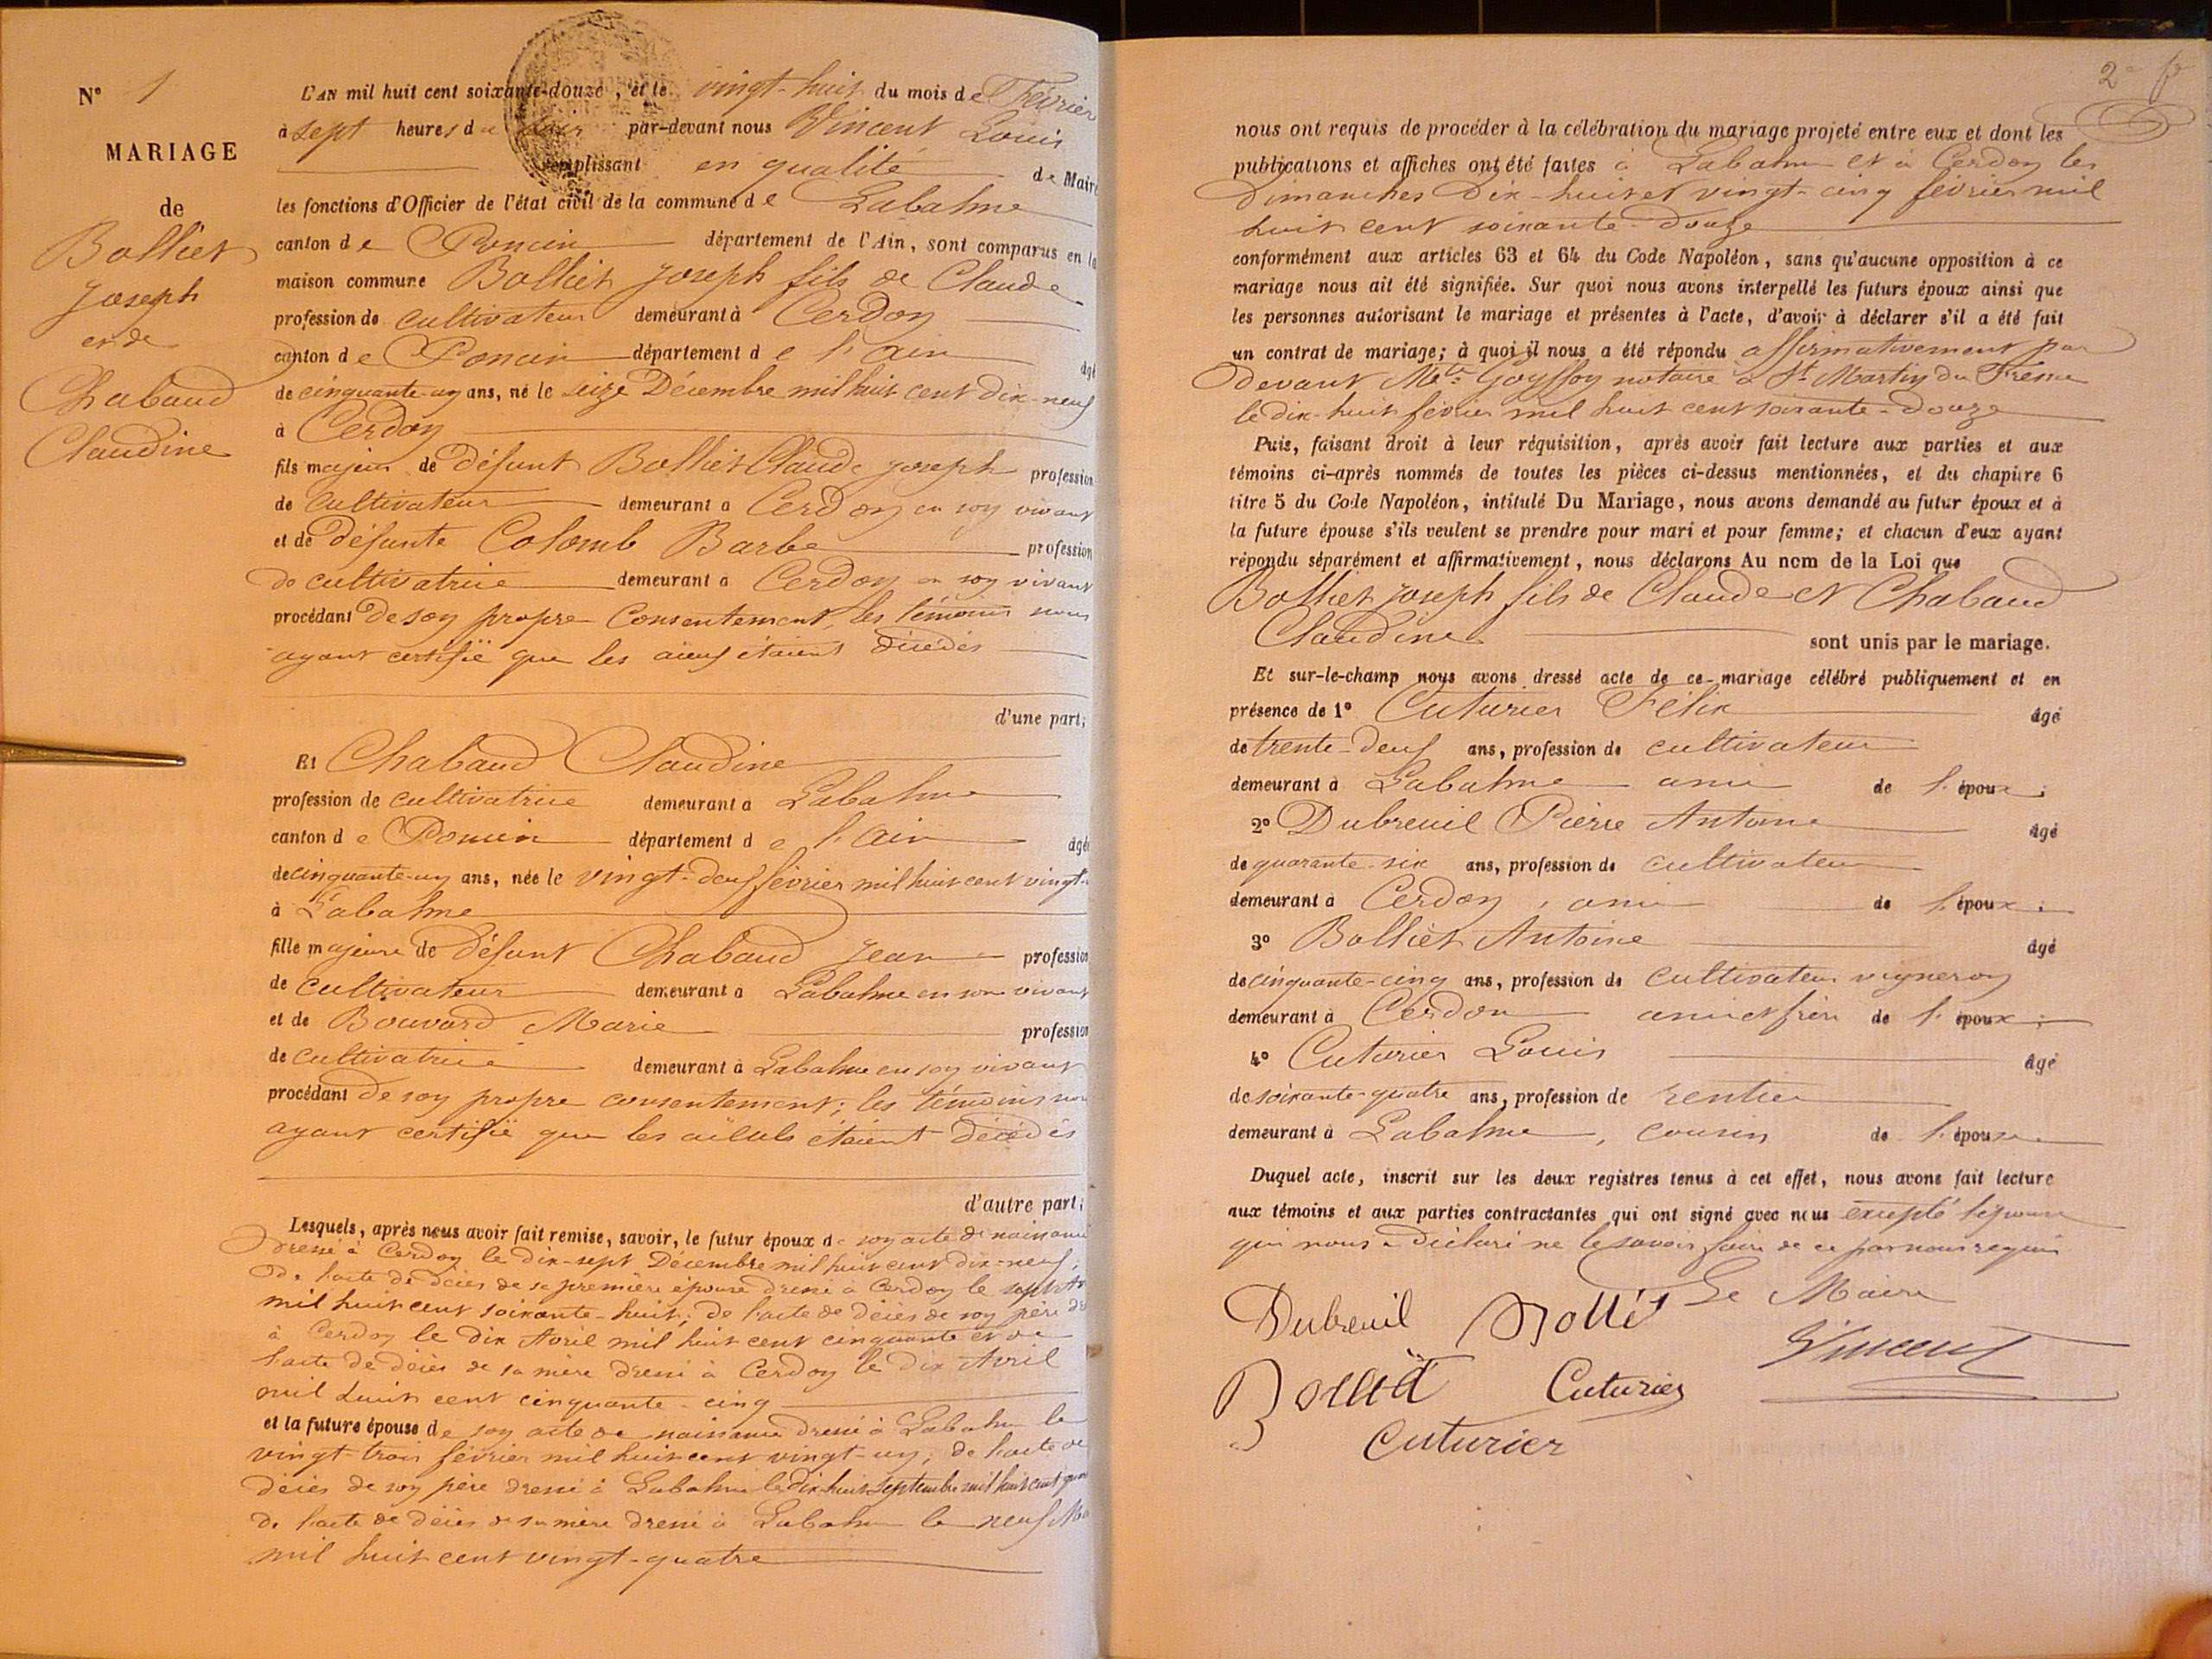 N° 1
MARIAGE
de
Bolliet
Joseph
et de
Chabaud
Claudine
L'AN mil huit cent soixante-douze, et le vingt-huit du mois de Février
à sept heures du soir par-devant nous Vincent Louis
remplissant en qualité de Maire
les fonctions d'Officier de l'état civil de la commune de Labalme
canton de Poncin département de l'Ain, sont comparus en la
maison commune Bolliet Joseph fils de Claude
profession de cultivateur demeurant à Cerdon
canton de Poncin département de l'Ain âgé
de cinquante-un ans, né le seize Décembre mil huit cent dix-neuf
à Cerdon
fils majeur de défunt Bolliet Claude Joseph profession
de cultivateur demeurant à Cerdon en son vivant
et de défunte Colomb Barbe profession
de cultivatrice demeurant à Cerdon en son vivant
procédant de son propre consentement, les témoins nous
ayant certifié que les aïeux étaient décédés
d'une part;
Et Chabaud Claudine
profession de cultivatrice demeurant à Labalme
canton de Poncin département de l'Ain âgée
de cinquante-un ans, née le vingt-deux février mil huit cent vingt-
à Labalme
fille majeure de défunt Chabaud Jean profession
de cultivateur demeurant à Labalme en son vivant
et de Bouvard Marie profession
de cultivatrice demeurant à Labalme en son vivant
procédant de son propre consentement; les témoins nous
ayant certifié que les aïeuls étaient décédés
d'autre part;
Lesquels, après nous avoir fait remise, savoir, le futur époux de son acte de naissance
dressé à Cerdon le dix-sept Décembre mil huit cent dix-neuf;
De l'acte de décès de sa première épouse dressé à Cerdon le sept
mil huit cent soixante-huit; de l'acte de décès de son père
à Cerdon le dix Avril mil huit cent cinquante et de
l'acte de décès de sa mère dressé à Cerdon le dix Avril
mil huit cent cinquante-cinq
et la future épouse de son acte de naissance dressé à Labalme le
vingt-trois février mil huit cent vingt-un; de l'acte de
décès de son père dressé à Labalme le dix-huit septembre mil huit cent
De l'acte de décès de sa mère dressé à Labalme le neuf
mil huit cent vingt-quatre
2e
nous ont requis de procéder à la célébration du mariage projeté entre eux et dont les
publications et affiches ont été faites à Labalme et à Cerdon les
Dimanches dix-huit et vingt-cinq février mil
huit cent soixante-douze
conformément aux articles 63 et 64 du Code Napoléon, sans qu'aucune opposition à ce
mariage nous ait été signifiée. Sur quoi nous avons interpellé les futurs époux ainsi que
les personnes autorisant le mariage et présentes à l'acte, d'avoir à déclarer s'il a été fait
un contrat de mariage; à quoi il nous a été répondu affirmativement par
devant Mtre Goyffon notaire à St Martin du Frêne
le dix-huit février mil huit cent soixante-douze
Puis, faisant droit à leur réquisition, après avoir fait lecture aux parties et aux
témoins ci-après nommés de toutes les pièces ci-dessus mentionnées, et du chapitre 6
titre 5 du Code Napoléon, intitulé Du Mariage, nous avons demandé au futur époux et à
la future épouse s'ils veulent se prendre pour mari et pour femme; et chacun d'eux ayant
répondu séparément et affirmativement, nous déclarons Au nom de la Loi que
Bolliet Joseph fils de Claude et Chabaud
Claudine sont unis par le mariage.
Et sur-le-champ nous avons dressé acte de ce mariage célébré publiquement et en
présence de 1° Cuturier Félix âgé
de trente-deux ans, profession de cultivateur
demeurant à Labalme ami de l'époux;
2° Dubreuil Pierre Antoine âgé
de quarante-six ans, profession de cultivateur
demeurant à Cerdon, ami de l'époux;
3° Bolliet Antoine âgé
de cinquante-cinq ans, profession de cultivateur vigneron
demeurant à Cerdon ami et frère de l'époux;
4° Cuturier Louis âgé
de soixante-quatre ans, profession de rentier
demeurant à Labalme, cousin de l'épouse
Duquel acte, inscrit sur les deux registres tenus à cet effet, nous avons fait lecture
aux témoins et aux parties contractantes qui ont signé avec nous excepté l'épouse
qui nous a déclaré ne le savoir faire de ce par nous requis
Le Maire
Dubreuil Bolliet
Vincent
Bolliet Cuturier
Cuturier